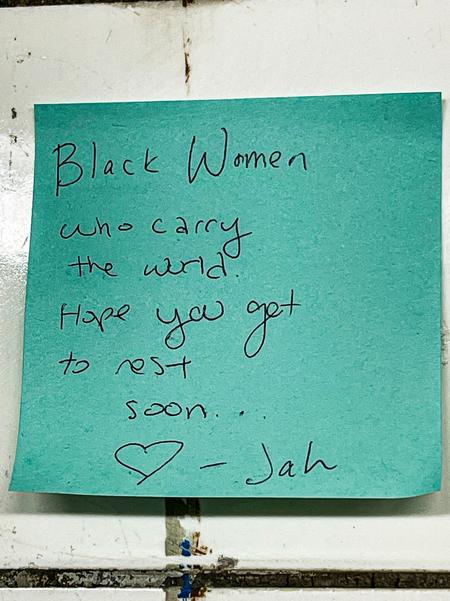 Black Women
who carry
the world.
Hope you get
to rest
soon...
♡ - Jah